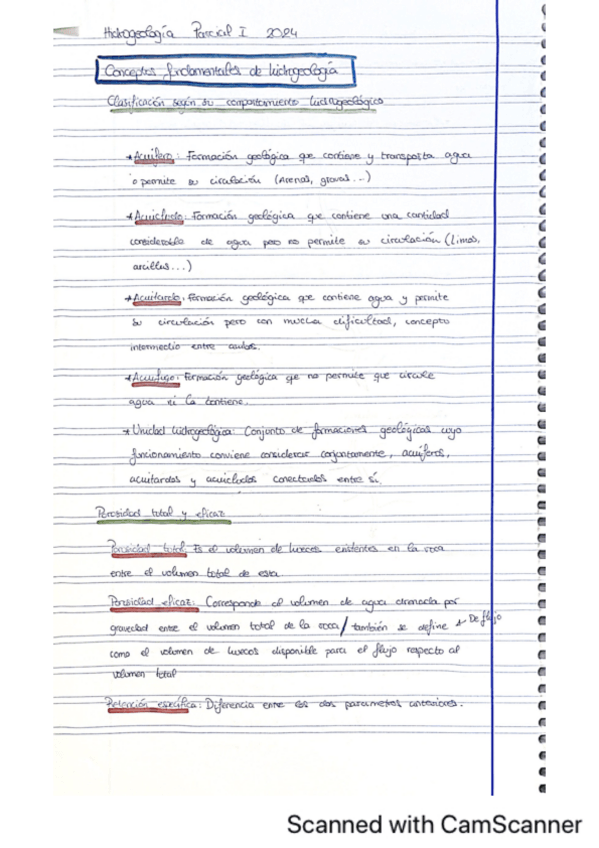 Hidrogeología Parcial I 2024
Conceptos fundamentales de hidrogeología
Clasificación según su comportamiento hidrogeológico
*Acuífero: Formación geológica que contiene y transporta agua
o permite su circulación (Arenas, gravas...)
*Acuicludo: Formación geológica que contiene una cantidad
considerable de agua pero no permite su circulación (Limos,
arcillas...)
*Acuitardo: Formación geológica que contiene agua y permite
su circulación pero con mucha dificultad, concepto
intermedio entre ambos.
*Acuífugo: Formación geológica que no permite que circule
agua ni la contiene.
*Unidad hidrogeológica: Conjunto de formaciones geológicas cuyo
funcionamiento conviene considerar conjuntamente, acuíferos,
acuitardos y acuicludos conectados entre sí.
Porosidad total y eficaz
Porosidad total: Es el volumen de huecos existentes en la roca
entre el volumen total de esta
Porosidad eficaz: Corresponde al volumen de agua drenada por
gravedad entre el volumen total de la roca / también se define * De flujo
como el volumen de huecos disponible para el flujo respecto al
volumen total
Retención específica: Diferencia entre los dos parametros anteriores.
Scanned with CamScanner